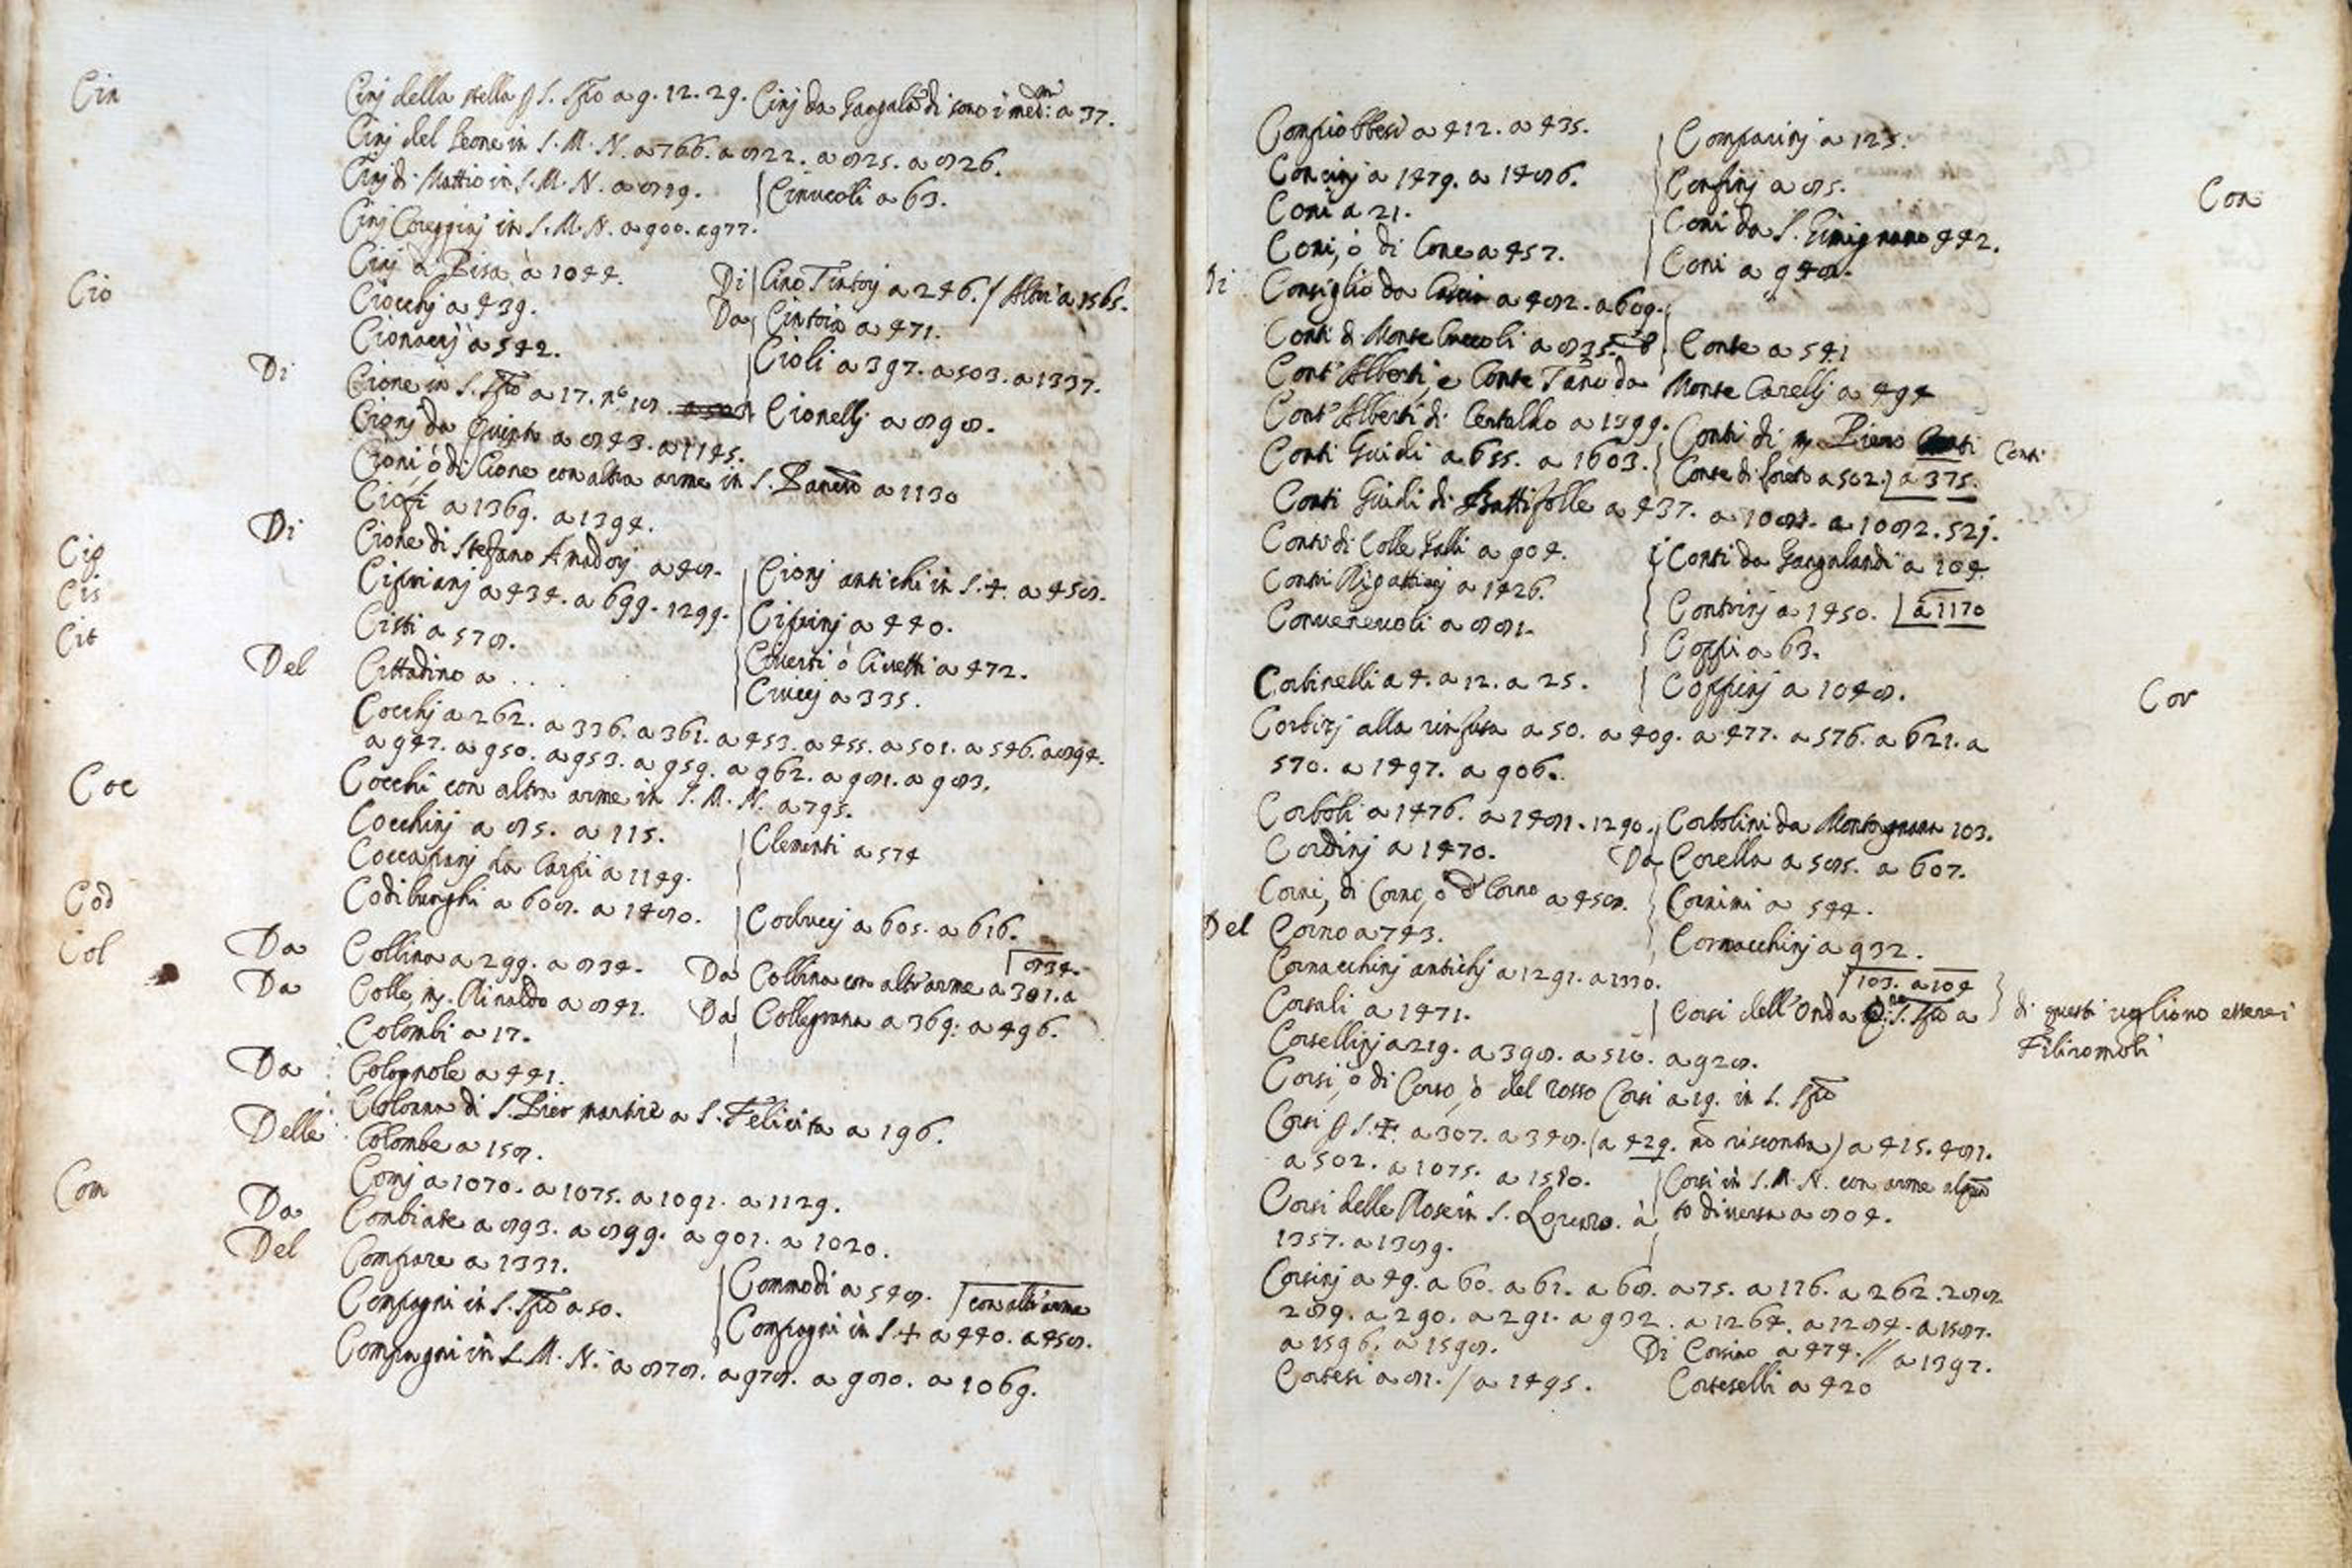 Cin
Cinj della stella p S. Spło a 9. 12. 29. Cinj da Gangalādi sono i med:mi a 37.
Cinj del Leone in S. M. N. a 766. a 822. a 825. a 826.
Cinj di Mattio in S. M. N. a 819. Cinucoli a 63.
Cinj in S. M. N. a 900. a 977.
Cinj da Pisa à 1044.
Cio
Ciocchj a 439. Di Cino Tintorj a 246. / Altri a 1565.
Cionaccj à 542. Da Cintoia a 471.
Cioli a 397. a 503. a 1337.
Di Cione in S. Spło a 17. no 18. Cionellj a 898.
Cionj da Quinto a 843. a 1145.
Cioni, ò di Cione con altra arme in S. a 1130
Ciofi a 1369. a 1394.
Di Cione di Stefano Amadorj a 48. Cionj antichi in S. + a 458.
Cip
Ciprianj a 434. a 699. 1299. Ciprinj a 440.
Cis
Cisti a 578. ò Civetti a 472.
Cit
Del Cittadino a . . . a 335.
Cocchj a 262. a 336. a 361. a 453. a 455. a 501. a 546. a 894.
a 947. a 950. a 953. a 959. a 962. a 981. a 983.
Coc
Cocchi con altra arme in S. M. N. a 795.
Cocchinj a 85. a 115. Clementi a 574
Coccapanj da Carpi a 1149.
Cod
Codilunghi a 608. a 1480. Coluccj a 605. a 616.
Col
Da Collina a 299. a 834. Da Collina con altr'arme a 301. a 834.
Da Colle, m. Rinaldo a 841. Da Collegrana a 369. a 496.
Colombi a 17.
Da Colognole a 441.
Colonna di S. Pier martire a S. Felicita a 196.
Delle Colombe a 158.
Com
Comj a 1070. a 1075. a 1091. a 1129.
Da Combiate a 893. a 899. a 901. a 1020.
Del Compare a 1331.
Compagni in S. Spło a 50. Commodi a 548. con altr'arme
Compagni in S. M. N. a 878. a 978. a 980. a 1069. Compagni in S. + a 440. a 458.
Compiobbesi a 412. a 435. Comparinj a 125.
Con
Concinj a 1479. a 1486. Confinj a 85.
Coni a 21. Coni da S. Gimignano 442.
Coni, ò di Cone a 457. Coni a 948.
Di Consiglio da Cascia a 482. a 609.
Conti di Monte Cuccoli a 835. Conte a 541
Cont'Alberti, e Conte Tano da Monte Carellj a 494
Cont'Alberti di Certaldo a 1399. Conti di m. Piero Conti
Conti Guidi a 655. a 1603. Conte di Loreto a 502. a 375.
Conti Guidi di Battifolle a 437. a 1081. a 1082. 521.
Conti di Colle Galli a 904. Conti da Gangalandi a 104.
Contri Rigattierj a 1426. Contrinj a 1450. a 1170
Convenevoli a 881. Coppi a 63.
Corbinelli a 4. a 12. a 25. Coppinj a 1048.
Cor
Corbizj alla rinfusa a 50. a 409. a 477. a 576. a 621. a
570. a 1497. a 906.
Corboli a 1476. a 1481. 1290. Corbolini da Montagnana 103.
Cordinj a 1470. Da Corella a 585. a 607.
Corni, di Corno, ò d' Corno a 458. Cornimi a 544.
Del Corno a 743. Cornacchinj a 932.
Cornacchinj antichj a 1291. a 1330. 103. a 104
Corsali a 1471. Corsi dell'Onda S. Spło a di questi vogliono essere i
Filiromoli
Corsellinj a 219. a 398. a 510. a 928.
Corsi, ò di Corso, ò del rosso Corsi a 19. in S. Spło
Corsi p S. +. a 307. a 348. (a 429. nō riscontra) a 415. 481.
a 502. a 1075. a 1580. Corsi in S. M. N. con arme alquā
Corsi delle Rose in S. Lorenzo. à to diversa a 804.
1357. a 1389.
Corsinj a 49. a 60. a 61. a 68. a 75. a 176. a 262. 288
289. a 290. a 291. a 932. a 1264. a 1284. a 1587.
a 1596. a 1598. Di Corsino a 474. // a 1397.
Cortesi a 81. / a 1495. Corteselli a 420